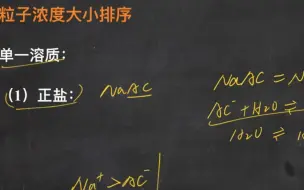 粒子浓度大小排序
单一溶质：
（1）正盐： NaAC
NaAC = N
AC⁻ + H₂O ⇌
H₂O ⇌ H
Na⁺ > AC⁻